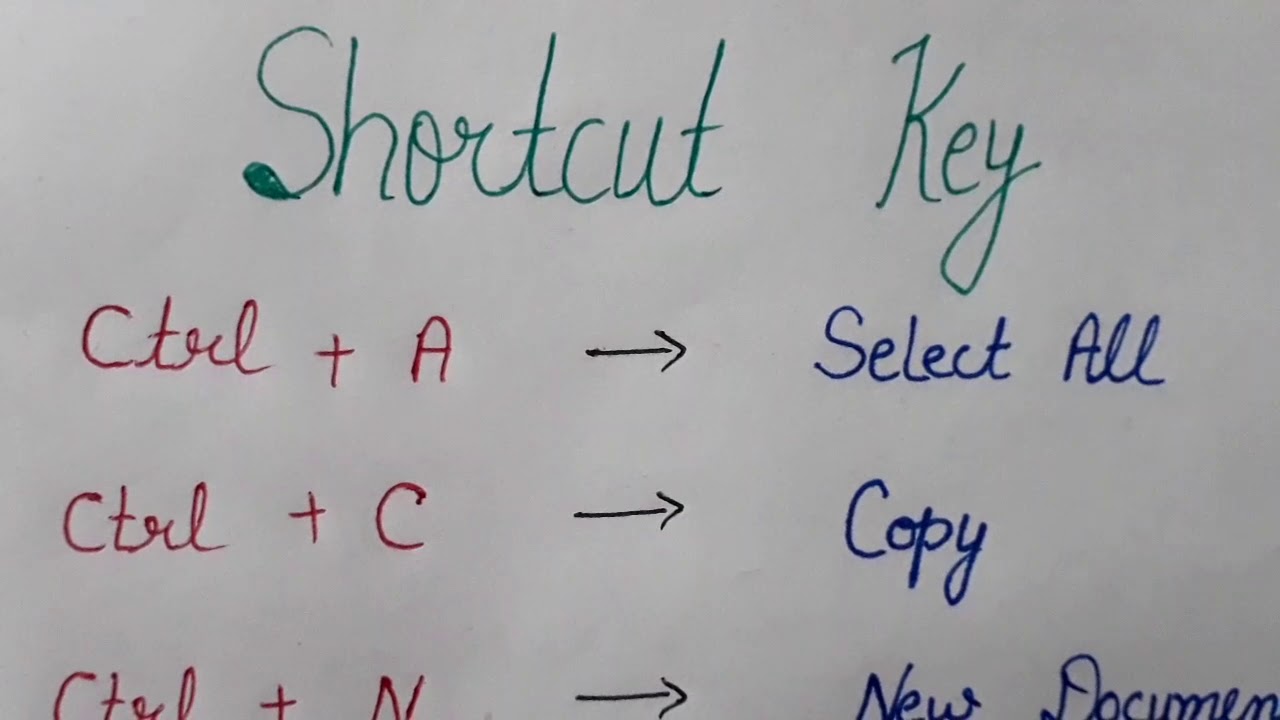 Shortcut Key
Ctrl + A → Select All
Ctrl + C → Copy
Ctrl + N → New Documen